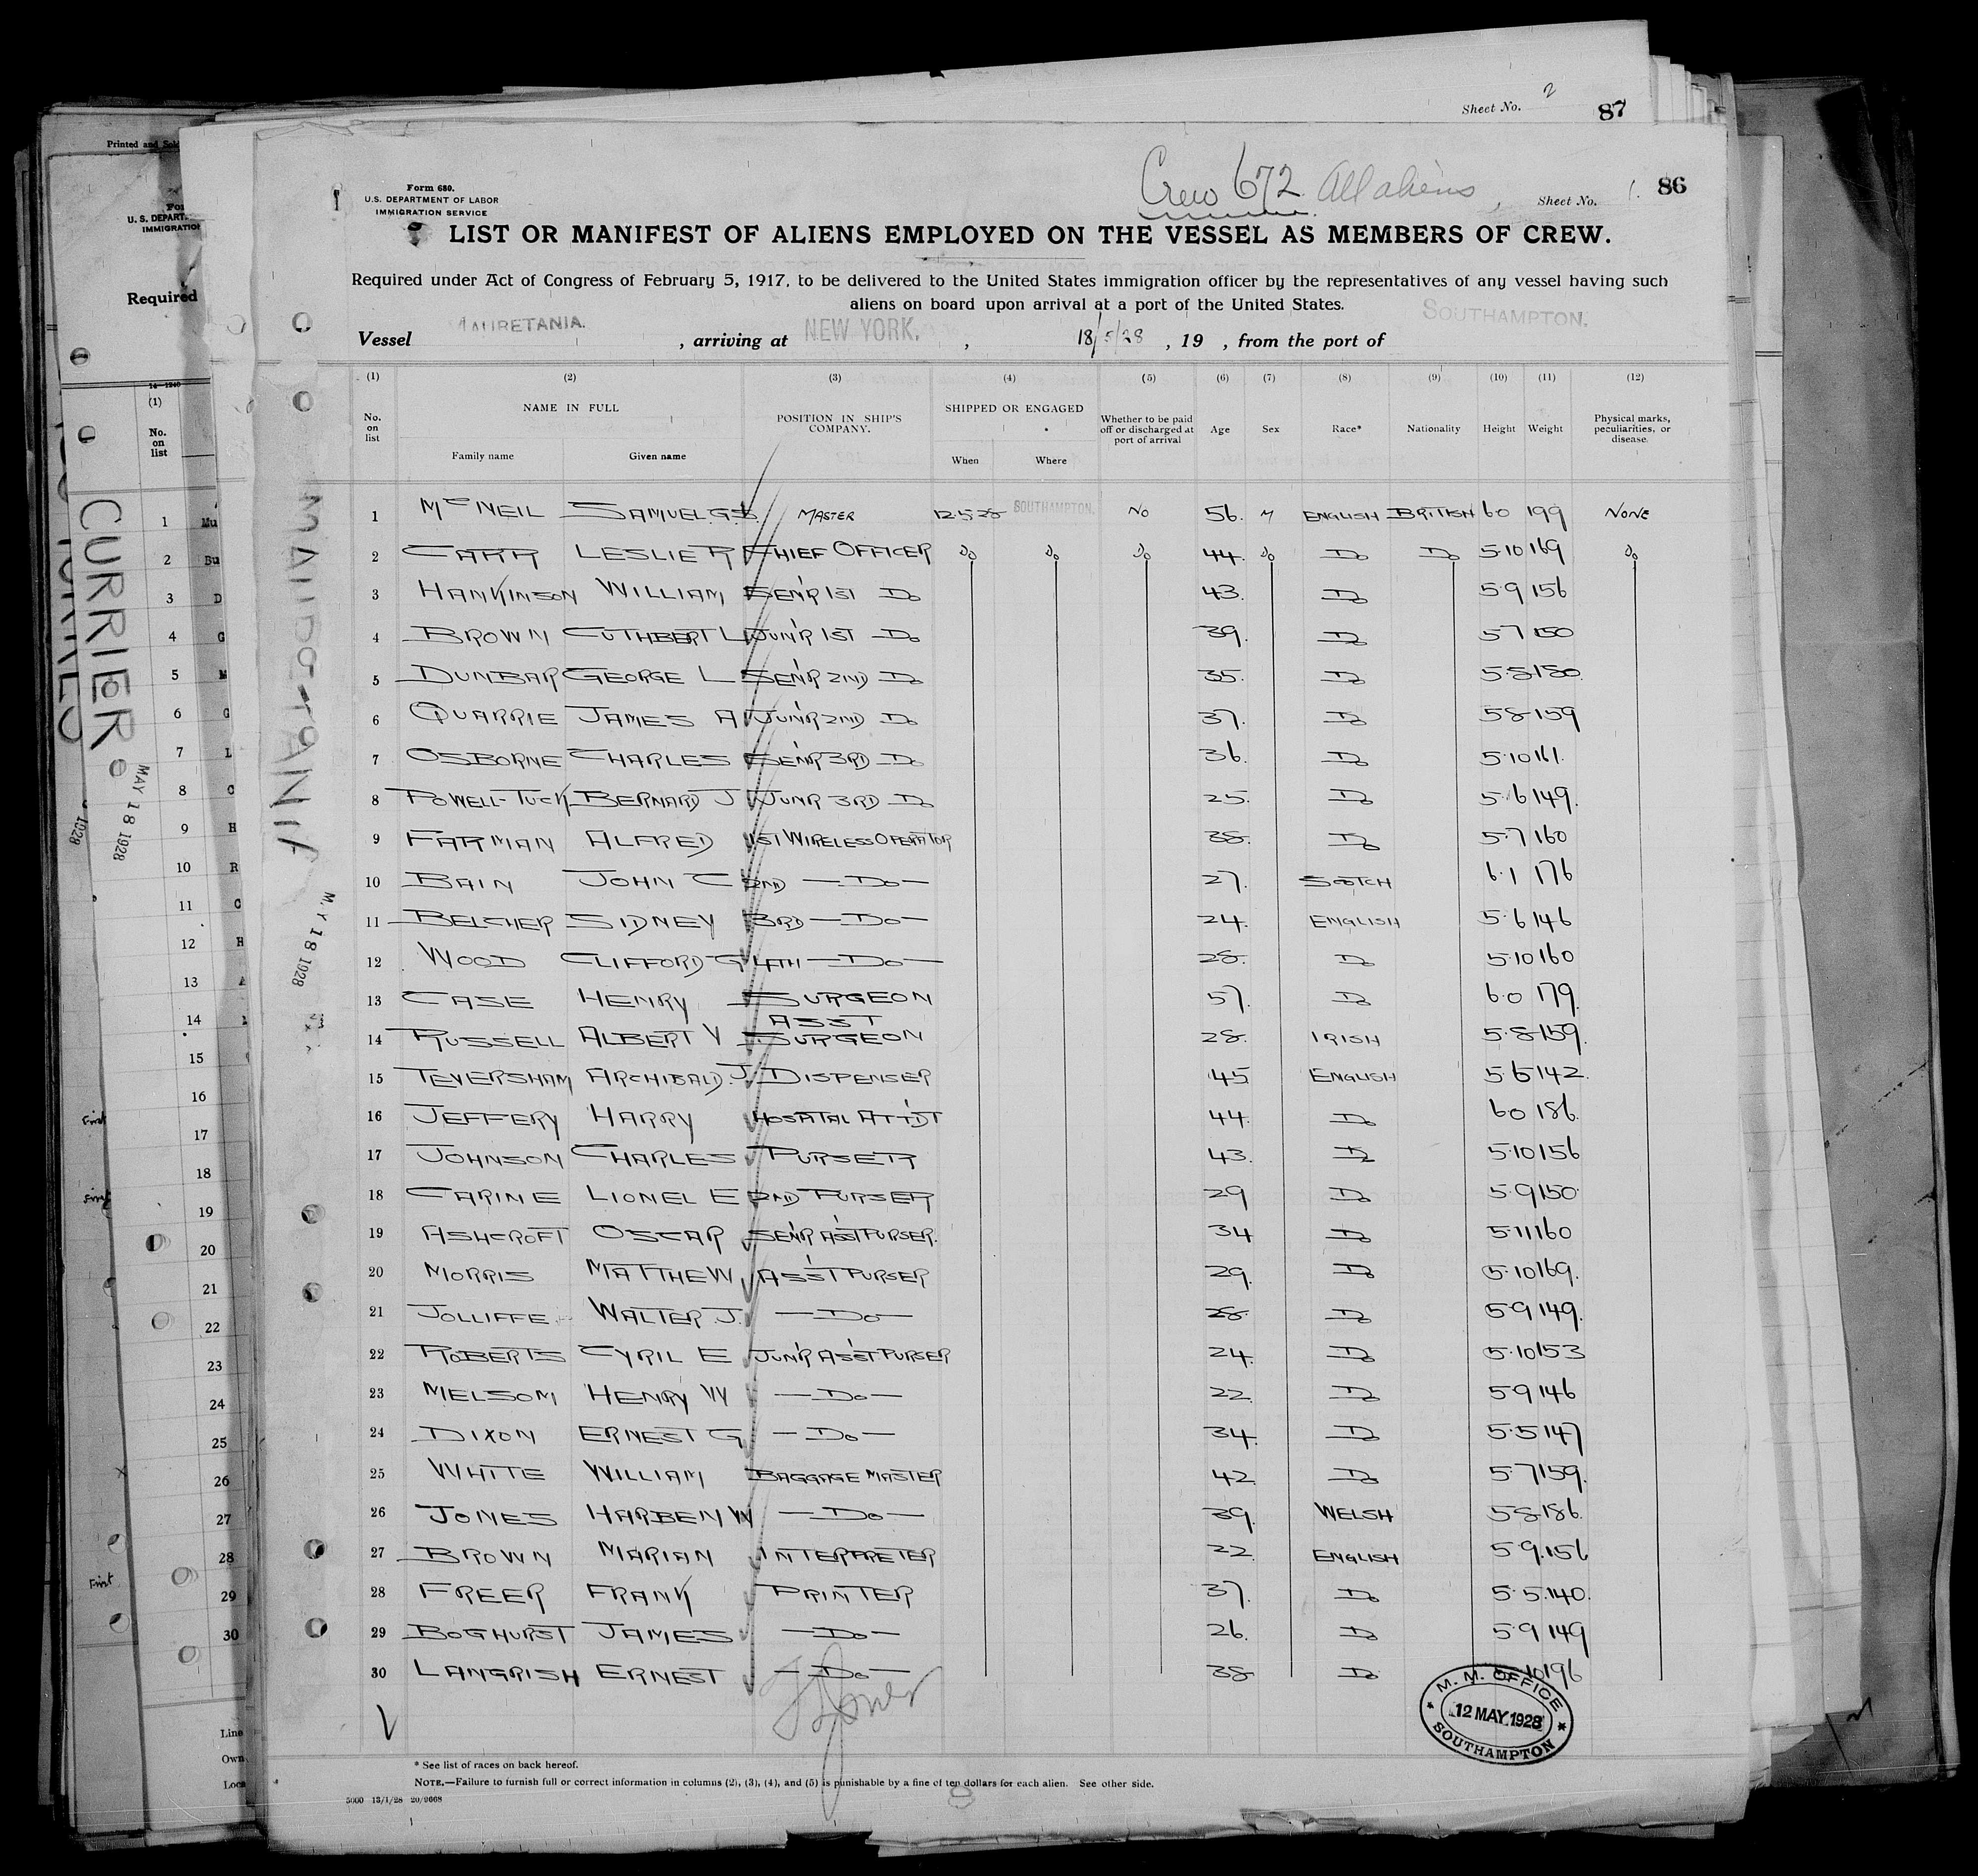 Sheet No. 2 87
Crew 672 All aliens, Sheet No. 1. 86
Form 680.
U.S. DEPARTMENT OF LABOR
IMMIGRATION SERVICE
LIST OR MANIFEST OF ALIENS EMPLOYED ON THE VESSEL AS MEMBERS OF CREW.
Required under Act of Congress of February 5, 1917, to be delivered to the United States immigration officer by the representatives of any vessel having such
aliens on board upon arrival at a port of the United States.
Vessel MAURETANIA. , arriving at NEW YORK. , 18/5/28 , 19 , from the port of SOUTHAMPTON.
(1) (2) (3) (4) (5) (6) (7) (8) (9) (10) (11) (12)
No. on list NAME IN FULL Family name Given name POSITION IN SHIP'S COMPANY. SHIPPED OR ENGAGED When Where Whether to be paid off or discharged at port of arrival Age Sex Race* Nationality Height Weight Physical marks, peculiarities, or disease.
1 McNEIL SAMUEL G.S. MASTER 12.5.28 SOUTHAMPTON. NO 56. M ENGLISH BRITISH 6 0 199 NONE
2 CARR LESLIE R CHIEF OFFICER Do Do Do 44. Do Do Do 5.10 169 Do
3 HANKINSON WILLIAM SEN'R 1ST Do 43. Do 5.9 156
4 BROWN CUTHBERT L JUN'R 1ST Do 39. Do 5 7 150
5 DUNBAR GEORGE L SEN'R 2ND Do 35. Do 5.8 180
6 QUARRIE JAMES A JUN'R 2ND Do 37. Do 5 8 159
7 OSBORNE CHARLES SEN'R 3RD Do 36. Do 5.10 161.
8 POWELL-TUCK BERNARD J JUNR 3RD Do 25. Do 5.6 149.
9 FARMAN ALFRED 1ST WIRELESS OPERATOR 38. Do 5.7 160
10 BAIN JOHN C 2ND —Do— 27. SCOTCH 6.1 176
11 BELCHER SIDNEY 3RD —Do— 24. ENGLISH 5.6 146
12 WOOD CLIFFORD G 4TH —Do— 28. Do 5.10 160
13 CASE HENRY SURGEON 57. Do 6.0 179.
14 RUSSELL ALBERT V ASST SURGEON 28. IRISH 5.8 159.
15 TEVERSHAM ARCHIBALD. J. DISPENSER 45 ENGLISH 5 6 142.
16 JEFFERY HARRY HOSPITAL ATT'DT 44. Do 6 0 186.
17 JOHNSON CHARLES PURSER 43. Do 5.10 156
18 CARINE LIONEL E 2ND PURSER 29 Do 5.9 150.
19 ASHCROFT OSCAR SEN'R ASS'T PURSER. 34 Do 5.11 160
20 MORRIS MATTHEW ASS'T PURSER 29. Do 5.10 169.
21 JOLLIFFE WALTER. J. —Do— 28. Do 5 9 149.
22 ROBERTS CYRIL E JUN'R ASS'T PURSER 24. Do 5.10 153
23 MELSOM HENRY W —Do— 22. Do 5 9 146
24 DIXON ERNEST G —Do— 34. Do 5.5 147
25 WHITE WILLIAM BAGGAGE MASTER 42 Do 5.7 159.
26 JONES HARBEN W —Do— 39. WELSH 5 8 186.
27 BROWN MARIAN INTERPRETER 22 ENGLISH 5 9. 156
28 FREER FRANK PRINTER 37. Do 5 5. 140.
29 BOGHURST JAMES —Do— 26. Do 5 9 149
30 LANGRISH ERNEST —Do— 38 Do 5 10 196
M. M. OFFICE
12 MAY 1928
SOUTHAMPTON
* See list of races on back hereof.
NOTE.—Failure to furnish full or correct information in columns (2), (3), (4), and (5) is punishable by a fine of ten dollars for each alien. See other side.
5000 13/1/28 20/9668
MAURETANIA
MAY 18 1928
Printed and
U. S. DEPART
IMMIGRATION
Required
14—1240
(1)
No.
on
list
CURRIER
MAY 18 1928
1928
1 Mu
2 Bu
3 D
4 G
5 M
6 G
7 L
8 C
9 H
10 R
11 C
12 H
13
14
15
16
17
18
19
20
21
22
23
24
25
26
27
28
29
30
First
First
First
Line
Own
Loca